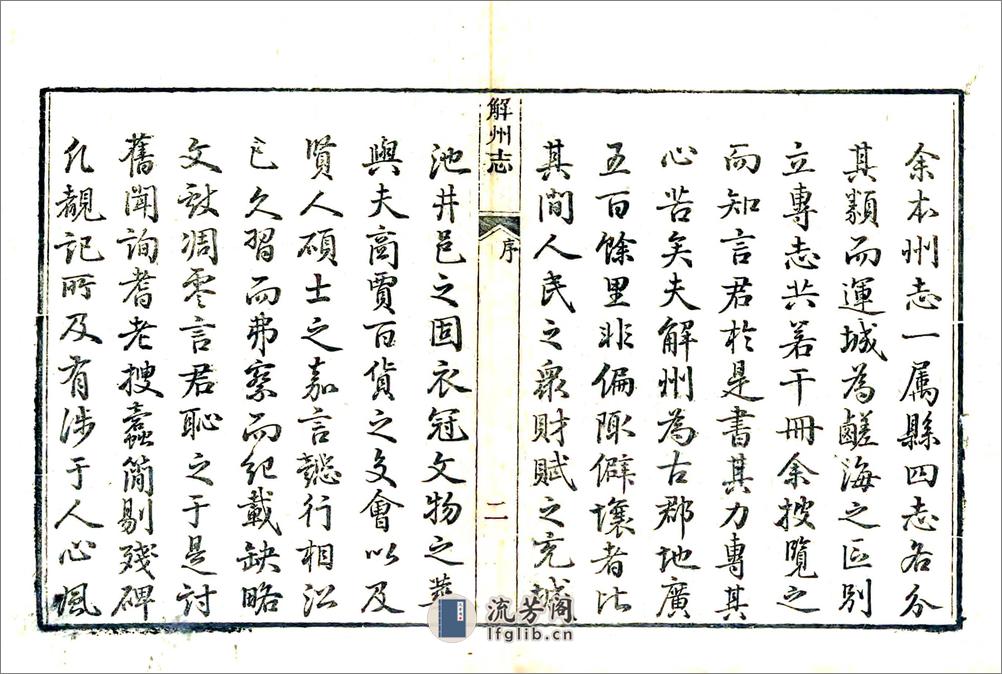 余本州志一属縣四志各分
其類而運城為鹺海之區別
立專志共若干冊余披覽之
而知言君於是書其力專其
心苦矣夫解州為古郡地廣
五百餘里非偏陬僻壤者比
其間人民之衆財賦之充城
解州志
序
二
池井邑之固衣冠文物之華
與夫商賈百貨之交會以及
賢人碩士之嘉言懿行相沿
已久習而弗察而紀載缺略
文獻凋零言君恥之于是討
舊聞詢耆老搜蠹簡剔殘碑
凡覩記所及有涉于人心風
流芳閣
lfglib.cn